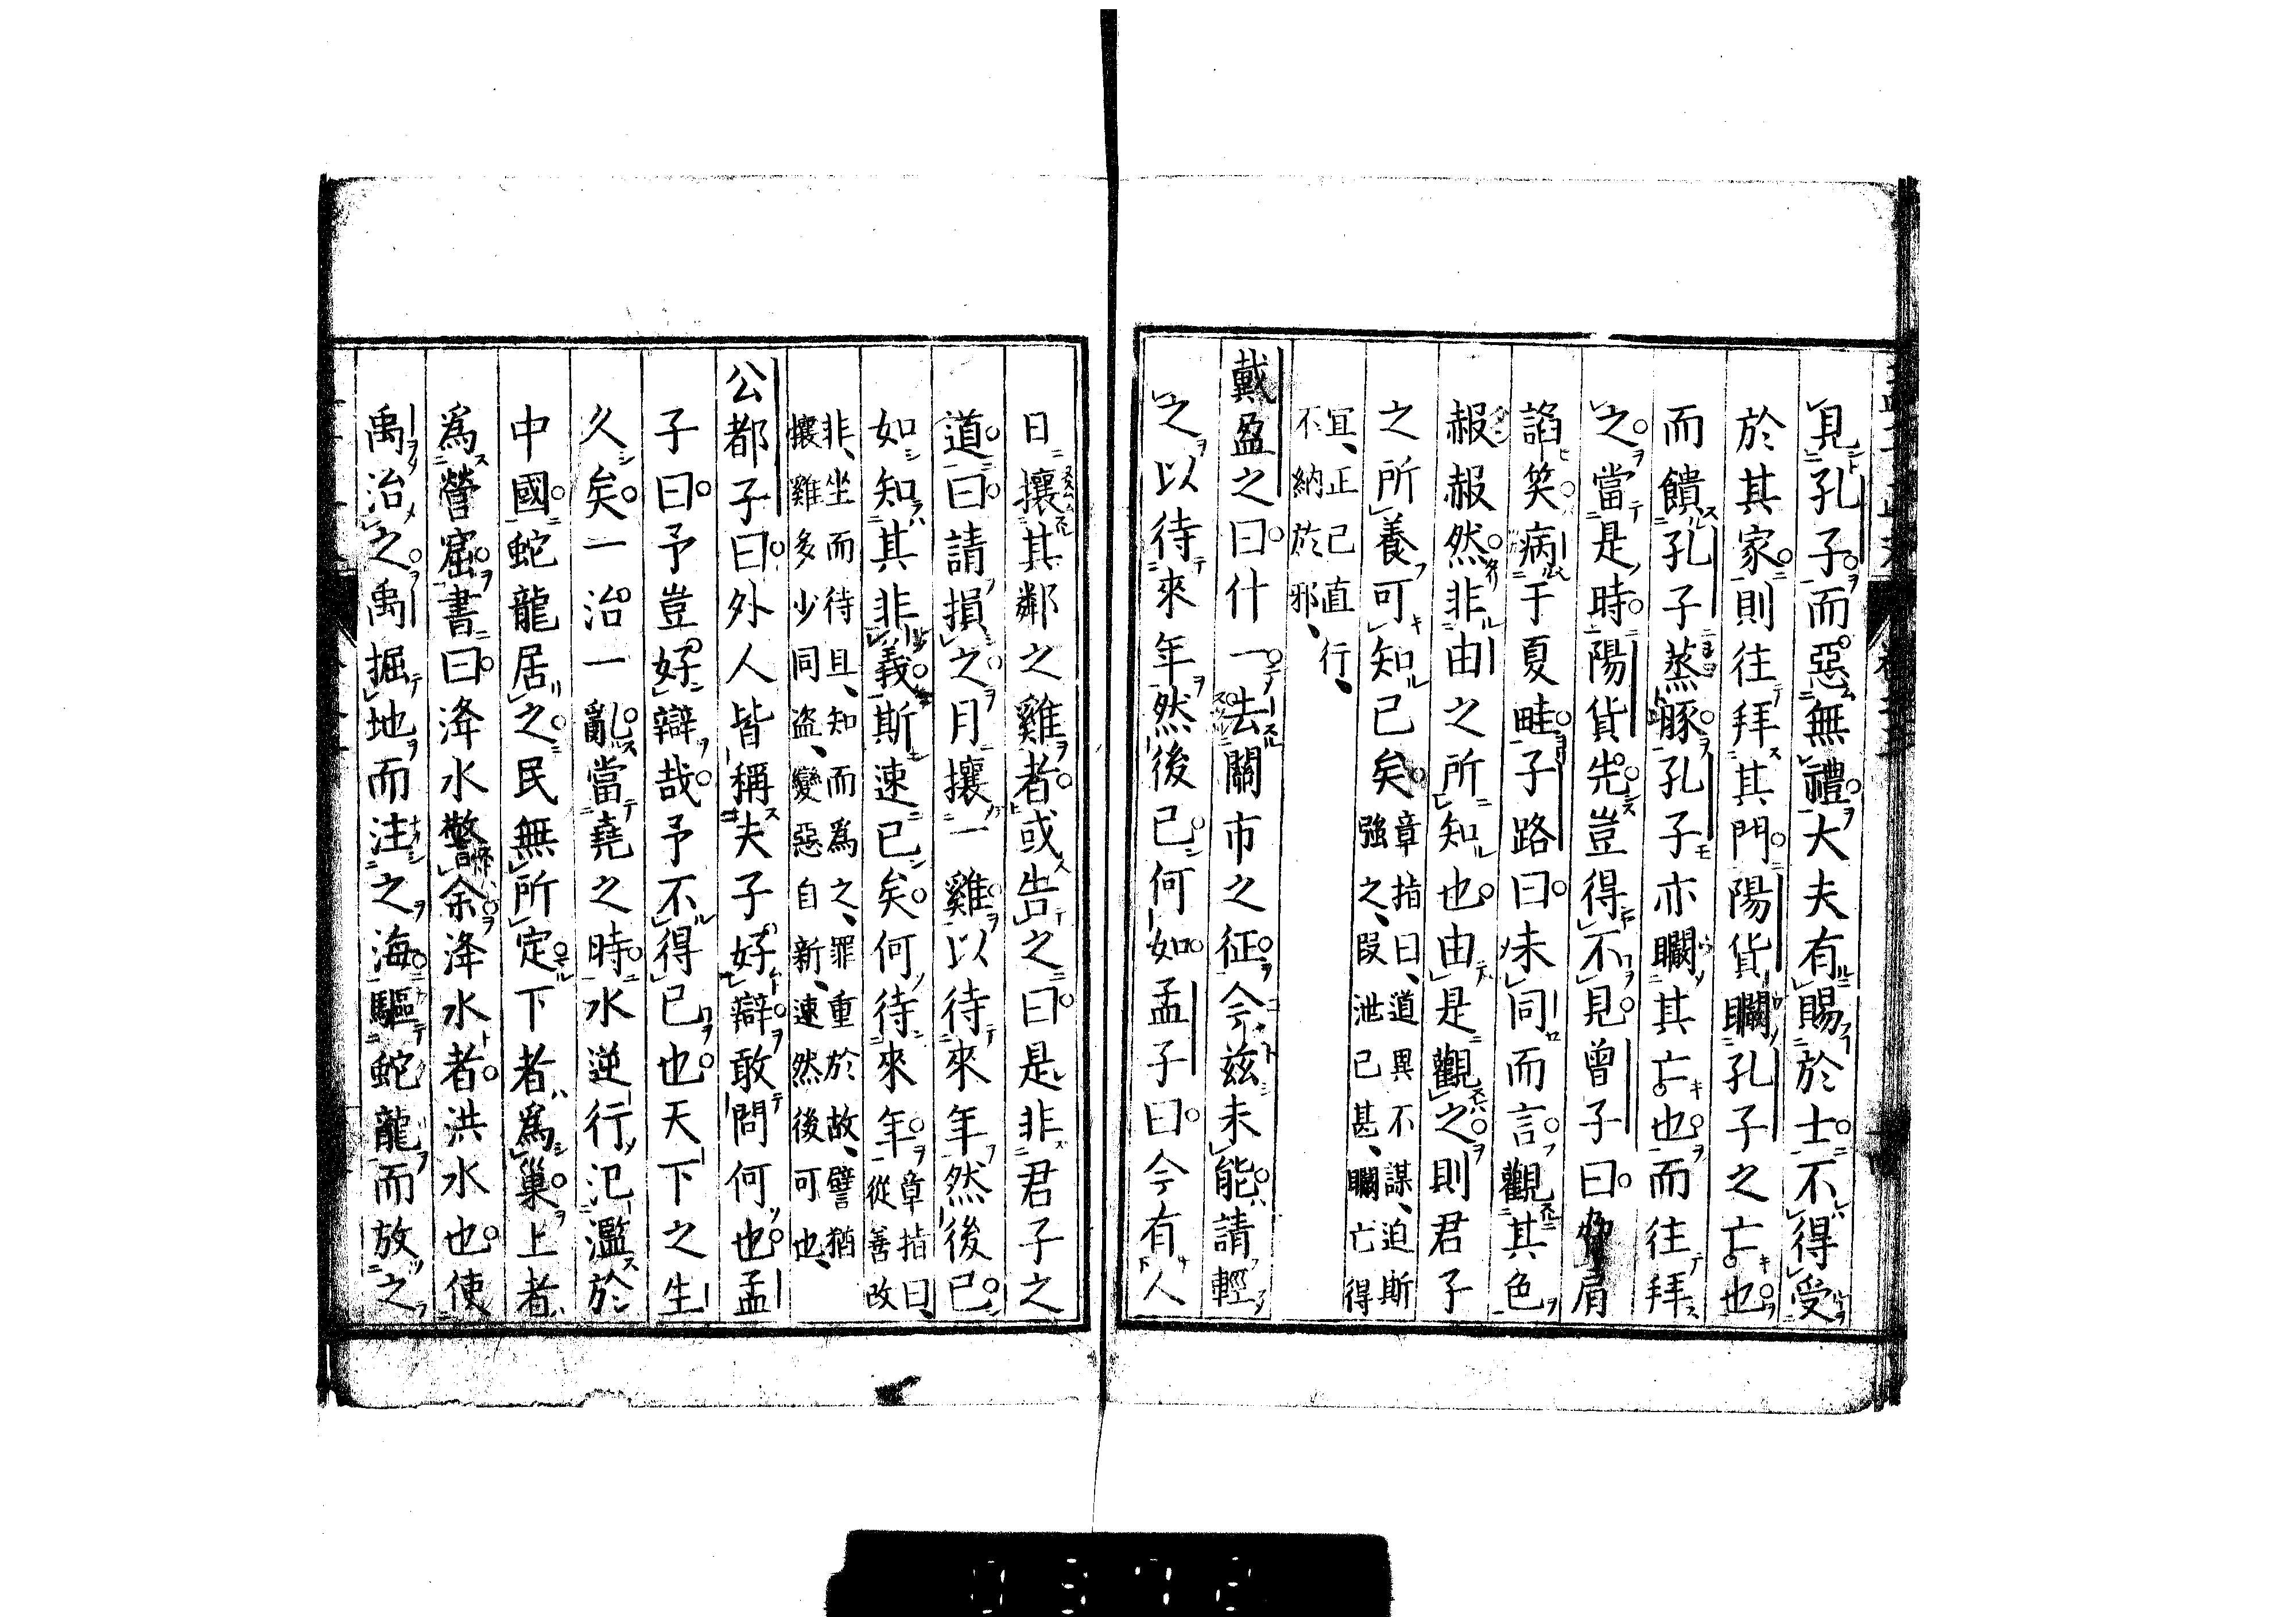 見孔子而惡無禮大夫有賜於士不得受
於其家則往拜其門陽貨矙孔子之亡也
而饋孔子蒸豚孔子亦矙其亡也而往拜
之當是時陽貨先豈得不見曾子曰脅肩
諂笑病于夏畦子路曰未同而言觀其色
赧赧然非由之所知也由是觀之則君子
之所養可知已矣章指曰、道異不謀、迫斯
强之、段泄已甚、矙亡得
宜、正己直行、
不納於邪、
戴盈之曰什一去關市之征今茲未能請輕
之以待來年然後已何如孟子曰今有人
日攘其鄰之雞者或告之曰是非君子之
道曰請損之月攘一雞以待來年然後已
如知其非義斯速已矣何待來年章指曰、
從善改
非、坐而待旦、知而爲之、罪重於故、譬猶
攘雞多少同盗、變惡自新、速然後可也、
公都子曰外人皆稱夫子好辯敢問何也孟
子曰予豈好辯哉予不得已也天下之生
久矣一治一亂當堯之時水逆行氾濫於
中國蛇龍居之民無所定下者爲巢上者
爲營窟書曰洚水警余洚水者洪水也使
禹治之禹掘地而注之海驅蛇龍而放之